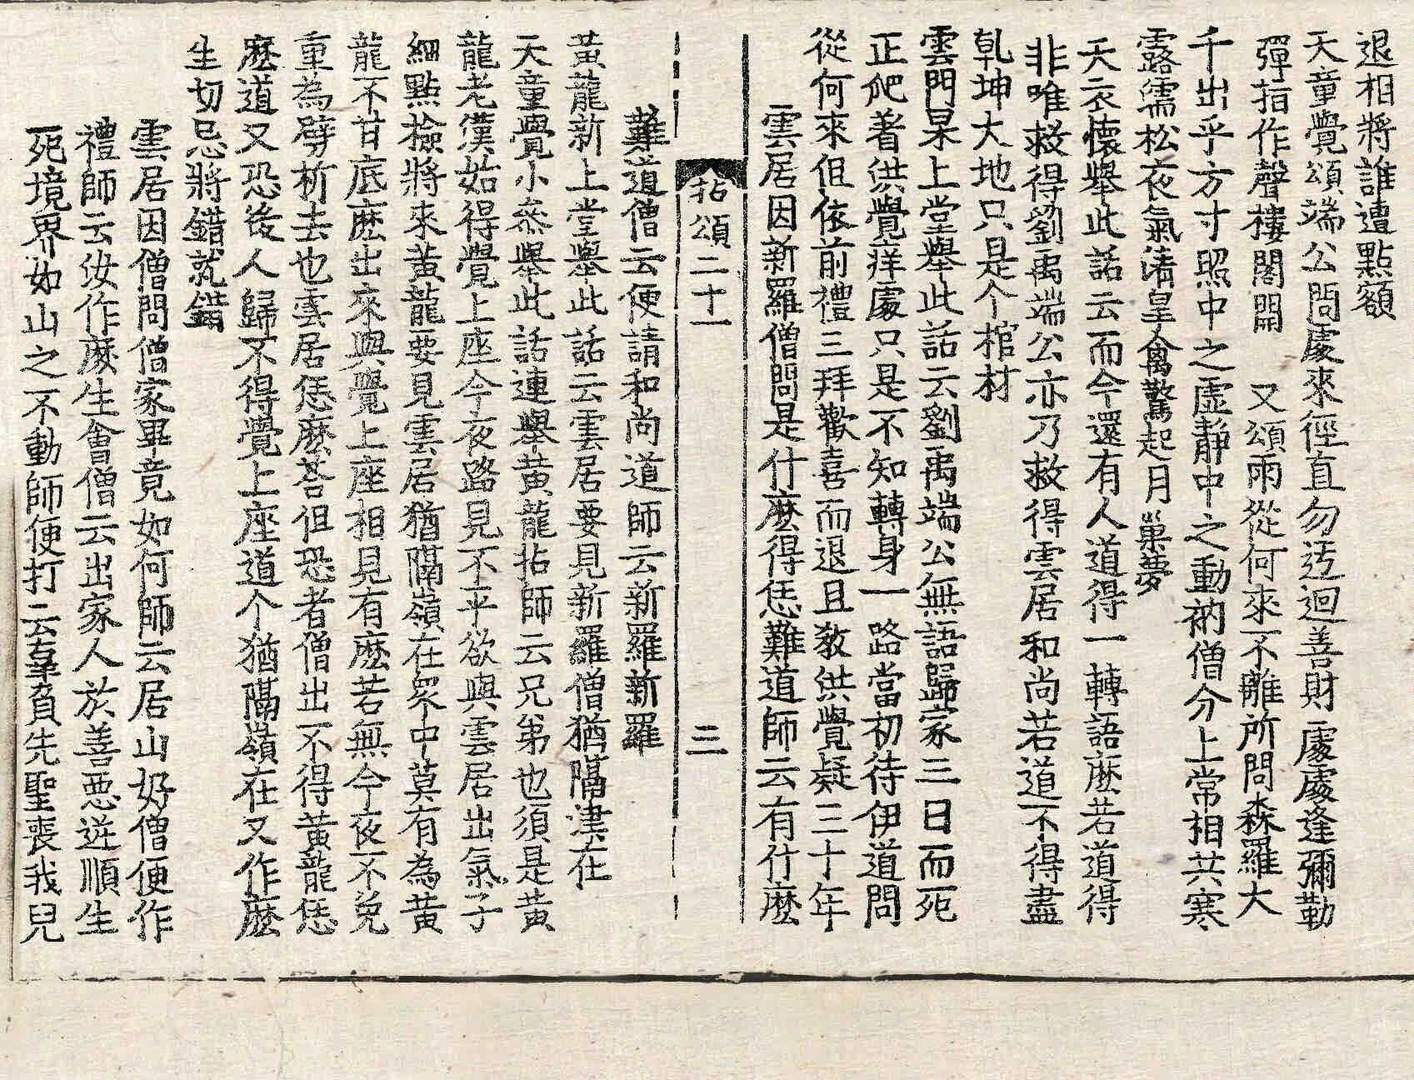 退相將誰遭點額
天童覺頌端公問處來徑直勿迃迴善財處處逢彌勒
彈指作聲樓閣開 又頌雨從何來不離所問森羅大
千出乎方寸照中之虛靜中之動衲僧分上常相共寒
露濡松夜氣淸皇禽驚起月巢夢
天衣懷舉此話云而今還有人道得一轉語麽若道得
非唯救得劉禹端公亦乃救得雲居和尚若道不得盡
乹坤大地只是个棺材
雲門杲上堂舉此話云劉禹端公無語歸家三日而死
正爬着洪覺痒處只是不知轉身一路當初待伊道問
從何來但依前禮三拜歡喜而退且敎洪覺疑三十年
雲居因新羅僧問是什麽得恁難道師云有什麽
拈頌二十一 三
難道僧云便請和尚道師云新羅新羅
黃龍新上堂舉此話云雲居要見新羅僧猶隔漢在
天童覺小叅舉此話連舉黃龍拈師云兄弟也須是黃
龍老漢始得覺上座今夜路見不平欲與雲居出氣子
細點檢將來黃龍要見雲居猶隔嶺在衆中莫有為黃
龍不甘底麽出來與覺上座相見有麽若無今夜不免
重為劈析去也雲居恁麽荅但恐者僧出不得黃龍恁
麽道又恐後人歸不得覺上座道个猶隔嶺在又作麽
生切忌將錯就錯
雲居因僧問僧家畢竟如何師云居山好僧便作
禮師云汝作麽生會僧云出家人於善惡逆順生
死境界如山之不動師便打云辜負先聖喪我兒